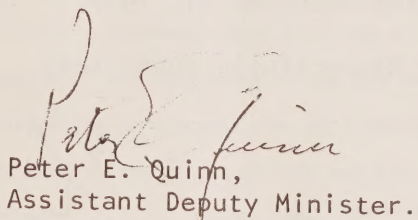 Peter E. Quinn
Peter E. Quinn,
Assistant Deputy Minister.